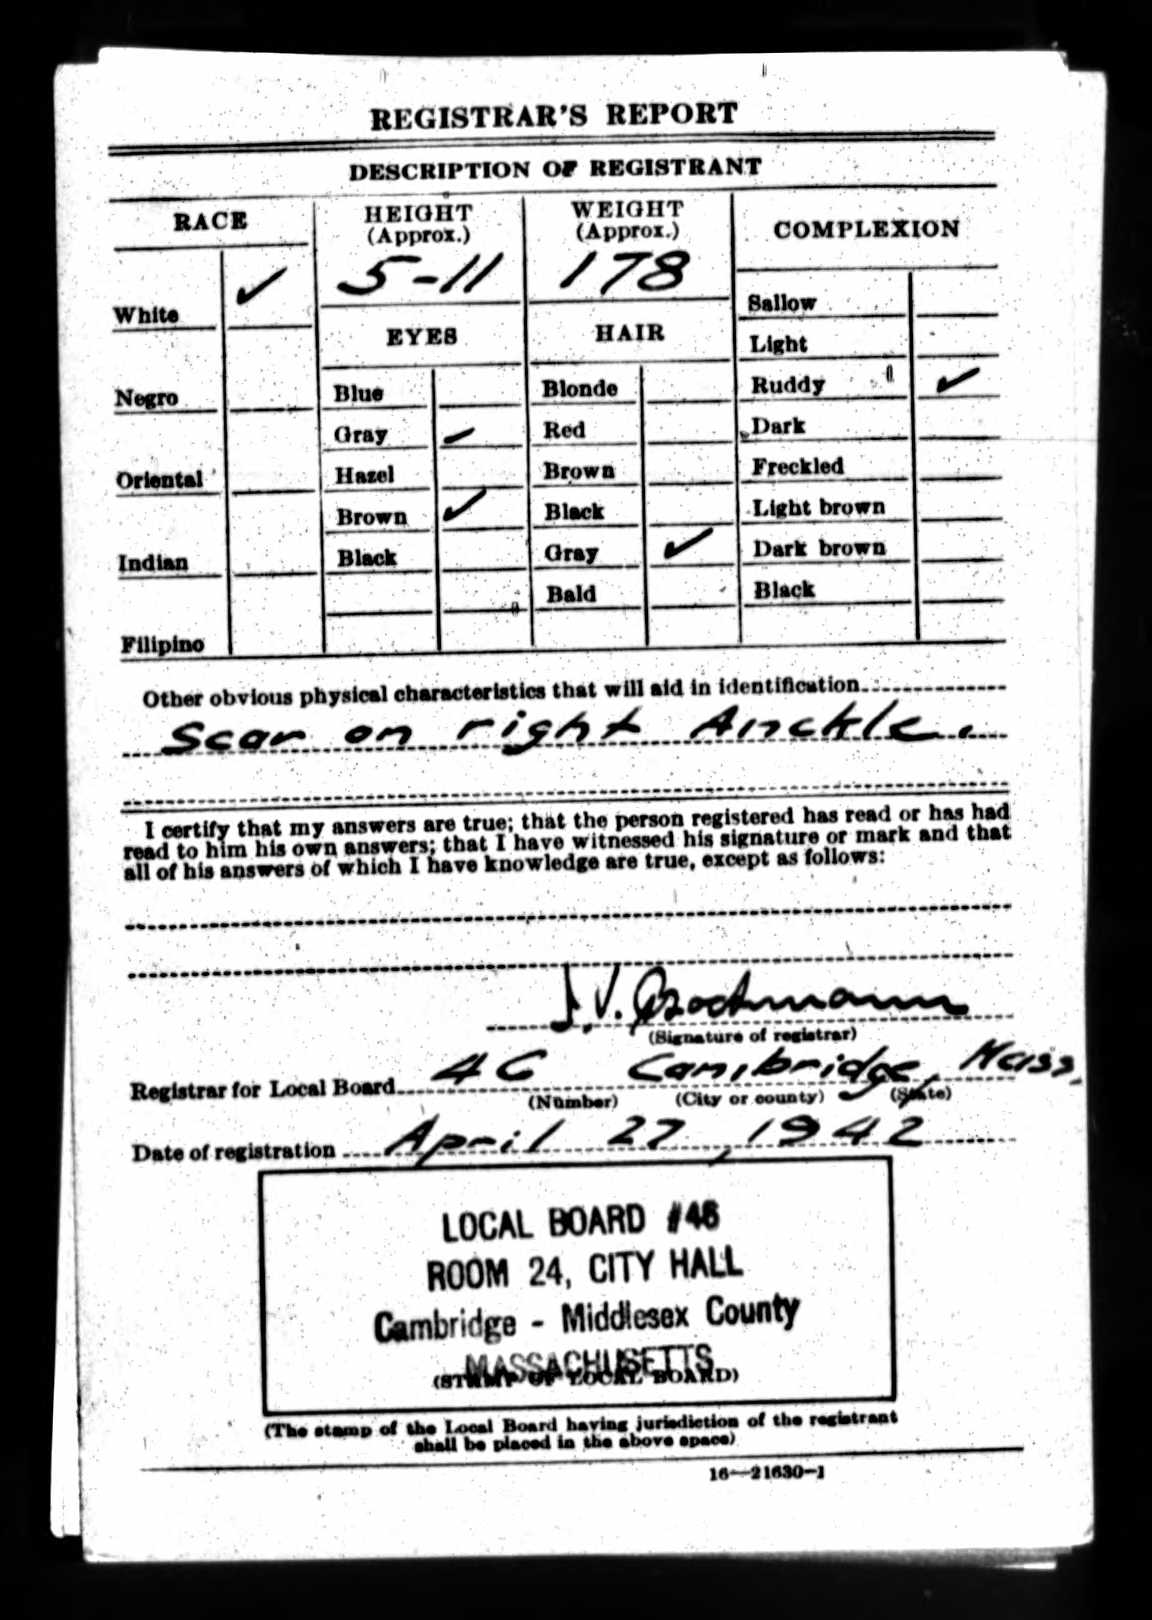 REGISTRAR'S REPORT
DESCRIPTION OF REGISTRANT
RACE
White ✓
Negro
Oriental
Indian
Filipino
HEIGHT
(Approx.)
5-11
EYES
Blue
Gray ✓
Hazel
Brown ✓
Black
WEIGHT
(Approx.)
178
HAIR
Blonde
Red
Brown
Black
Gray ✓
Bald
COMPLEXION
Sallow
Light
Ruddy ✓
Dark
Freckled
Light brown
Dark brown
Black
Other obvious physical characteristics that will aid in identification
Scar on right Anckle.
I certify that my answers are true; that the person registered has read or has had
read to him his own answers; that I have witnessed his signature or mark and that
all of his answers of which I have knowledge are true, except as follows:
J. V.
(Signature of registrar)
Registrar for Local Board 46 Cambridge, Mass.
(Number) (City or county) (State)
Date of registration April 27, 1942
LOCAL BOARD #46
ROOM 24, CITY HALL
Cambridge - Middlesex County
MASSACHUSETTS
(STAMP OF LOCAL BOARD)
(The stamp of the Local Board having jurisdiction of the registrant
shall be placed in the above space)
16—21630-1